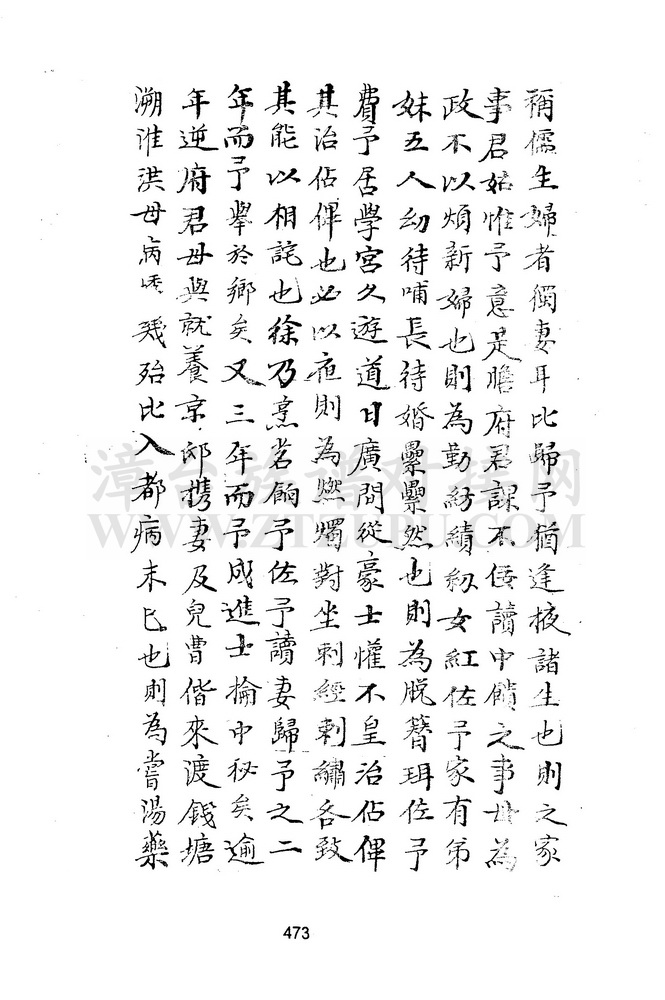 稱儒生婦者獨妻耳比歸予猶逢掖諸生也則之家
事君姑惟予意是膽府君課不佞讀中饋之事母為
政不以煩新婦也則為勤紡績紉女紅佐予家有弟
妹五人幼待哺長待婚纍纍然也則為脫簪珥佐予
費予居學宮久遊道日廣間從豪士懽不皇治佔俾
其治佔俾也必以夜則為燃燭對坐刺經刺繡各致
其能以相詫也徐乃烹茗餉予佐予讀妻歸予之二
年而予舉於鄉矣又三年而予成進士掄中秘矣逾
年逆府君母與就養京邸携妻及兒曹偕來渡錢塘
溯淮洪母病幾殆比入都病未已也則為嘗湯藥
漳台族譜對接網
WWW.ZTZUPU.COM
473